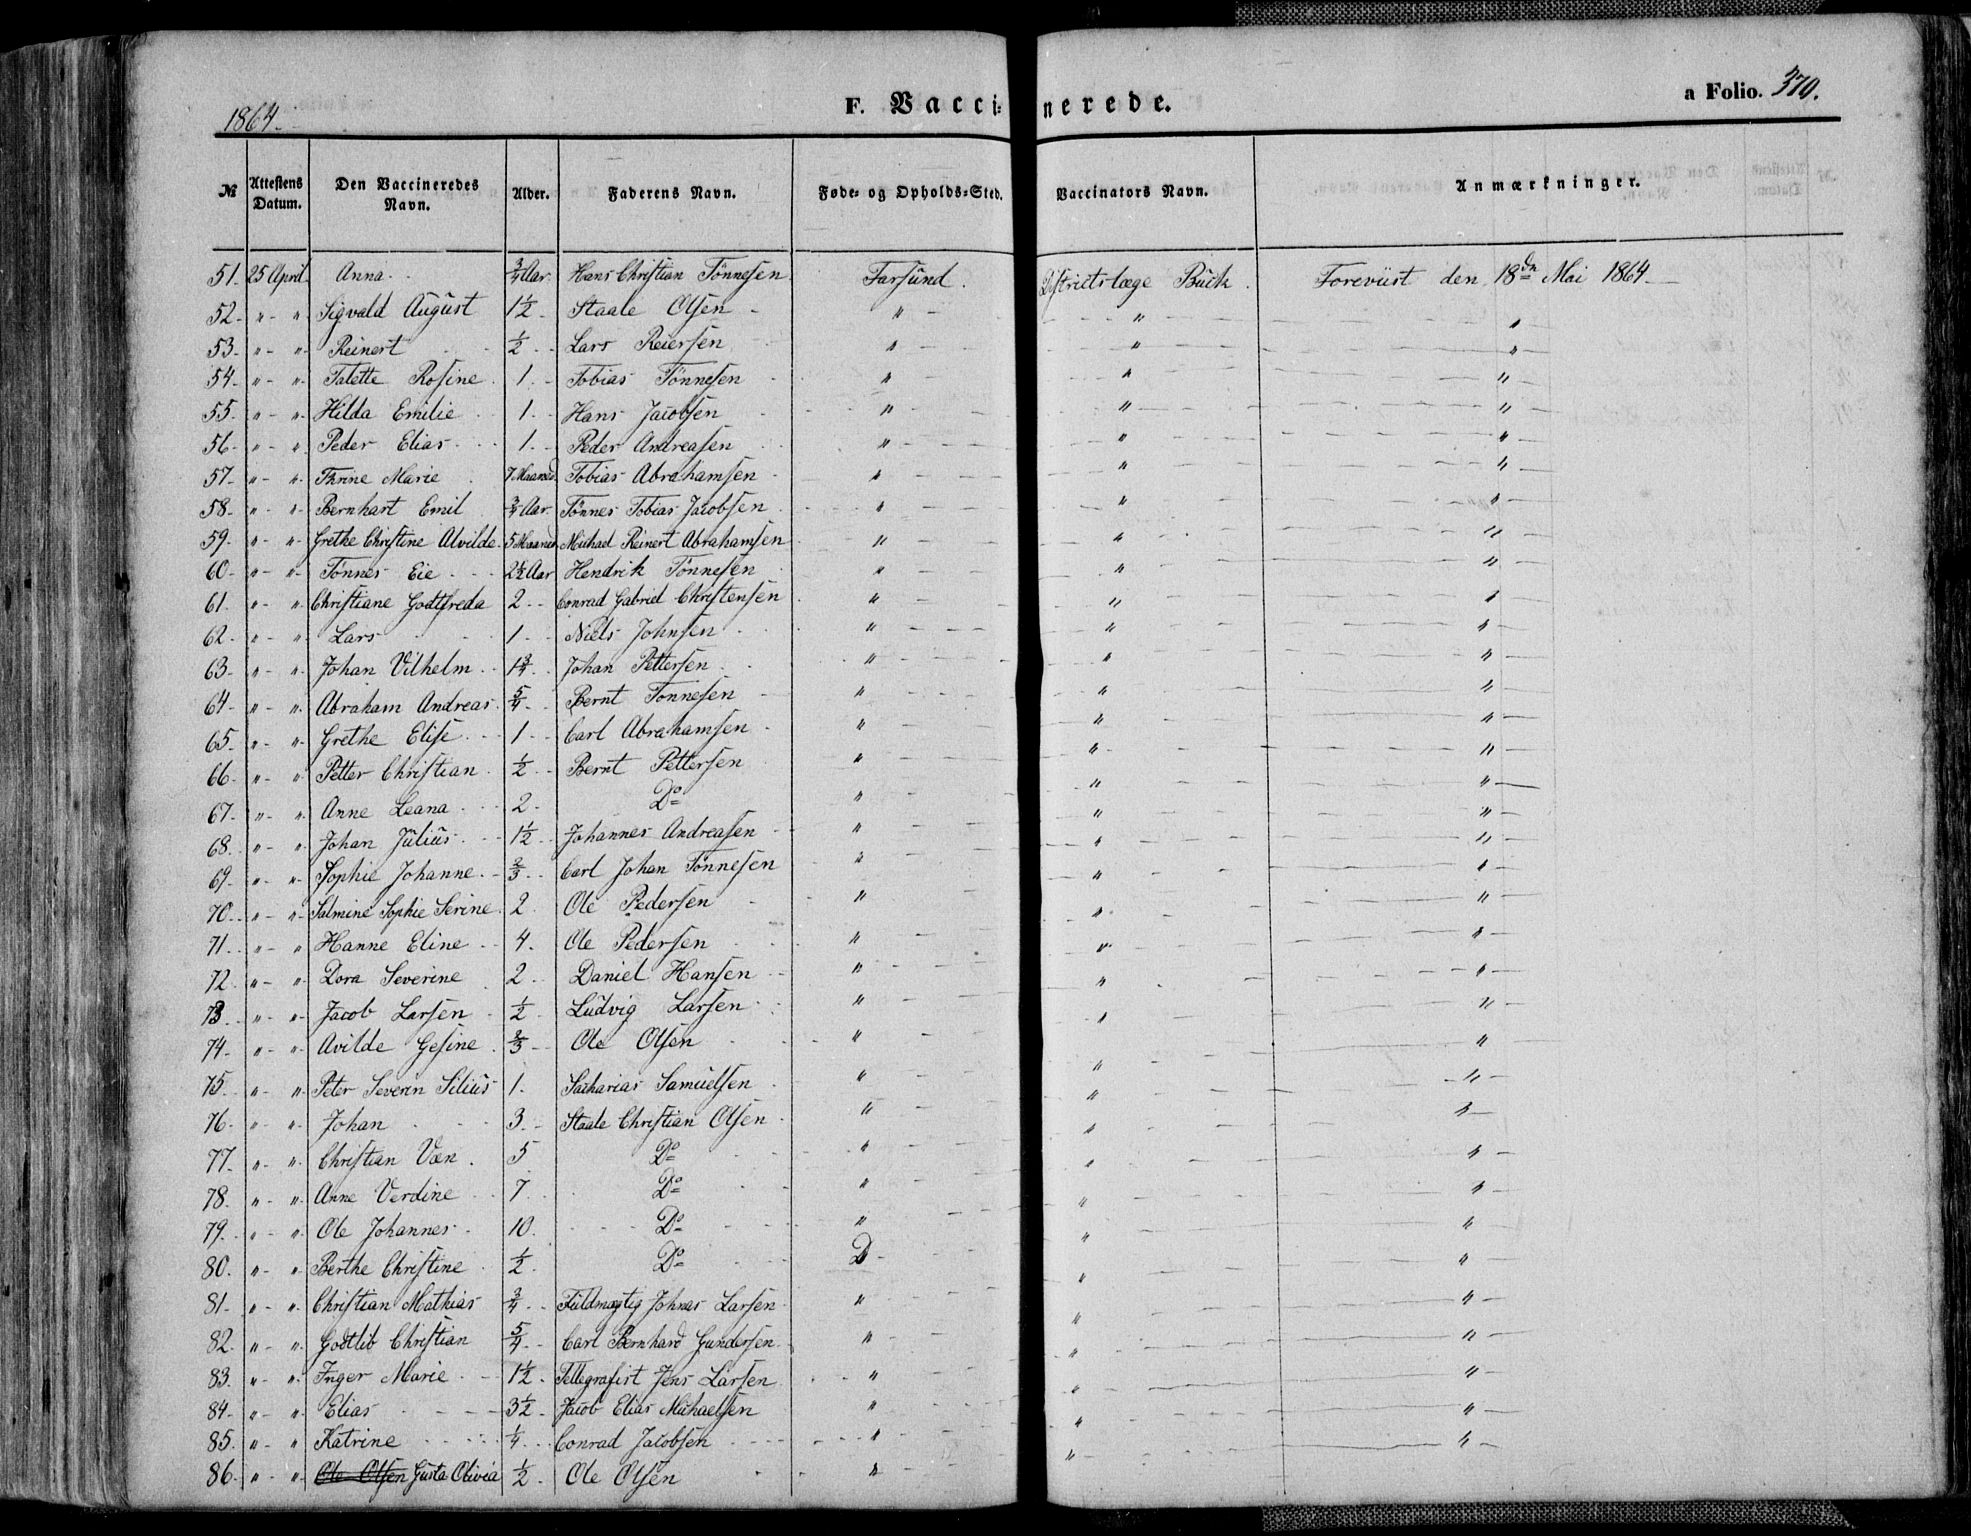 1864.
F. Vaccinerede.
a Folio. 370.
№ | Attestens Datum. | Den Vaccineredes Navn. | Alder. | Faderens Navn. | Føde- og Opholds-Sted. | Vaccinators Navn. | Anmærkninger.
51. 25 April Anna 3/4 Aar. Hans Christian Tönnesen Farsund. Districtslæge Buck. Foreviist den 18de Mai 1864.
52. " " Sigvald August 1 1/2 Staale Olsen " " "
53. " " Reinert 1/2 Lars Reiersen " " "
54. " " Talette Rosine 1. Tobias Tönnesen " " "
55. " " Hilda Emilie 1. Hans Jacobsen " " "
56. " " Peder Elias 1. Peder Andreasen " " "
57. " " Thrine Marie 7 Maaned. Tobias Abrahamsen " " "
58. " " Bernhart Emil 3/4 Aar. Tönnes Tobias Jacobsen " " "
59. " " Grethe Christine Alvilde 5 Maaned Michael Reinert Abrahamsen " " "
60. " " Tönnes Eie 2 1/2 Aar Hendrik Tönnesen " " "
61. " " Christiane Godtfreda 2 Conrad Gabriel Christensen " " "
62. " " Lars 1 Niels Johnsen " " "
63. " " Johan Vilhelm 1 3/4 Johan Pettersen " " "
64. " " Abraham Andreas 5/4 Bernt Tönnesen " " "
65. " " Grethe Elise 1 Carl Abrahamsen " " "
66. " " Petter Christian 1/2 Bernt Pettersen " " "
67. " " Anne Leana 2 Do " " "
68. " " Johan Julius 1 1/2 Johannes Andreasen " " "
69. " " Sophie Johanne 2/3 Carl Johan Tönnesen " " "
70. " " Salmine Sophie Serine 2 Ole Pedersen " " "
71. " " Hanne Eline 4. Ole Pedersen " " "
72. " " Dora Severine 2 Daniel Hansen " " "
73. " " Jacob Larsen 1/2 Ludvig Larsen " " "
74. " " Avilde Gesine 2/3 Ole Olsen " " "
75. " " Peter Severin Silius 1. Sacharias Samuelsen " " "
76. " " Johan 3. Staale Christian Olsen " " "
77. " " Christian Væn 5 Do " " "
78. " " Anne Verdine 7 Do " " "
79. " " Ole Johannes 10. Do " " "
80. " " Berthe Christine 1/2 Do D " "
81. " " Christian Mathias 3/4 Fuldmægtig Johnas Larsen " " "
82. " " Godtlib Christian 5/4 Carl Bernhard Gundersen " " "
83. " " Inger Marie 1 1/2 Tellegrafist Jens Larsen " " "
84. " " Elias 3 1/2 Jacob Elias Michaelsen " " "
85. " " Katrine 1/4 Conrad Jacobsen " " "
86. " " Ole Olsen Gusta Olivia 1/2 Ole Olsen "